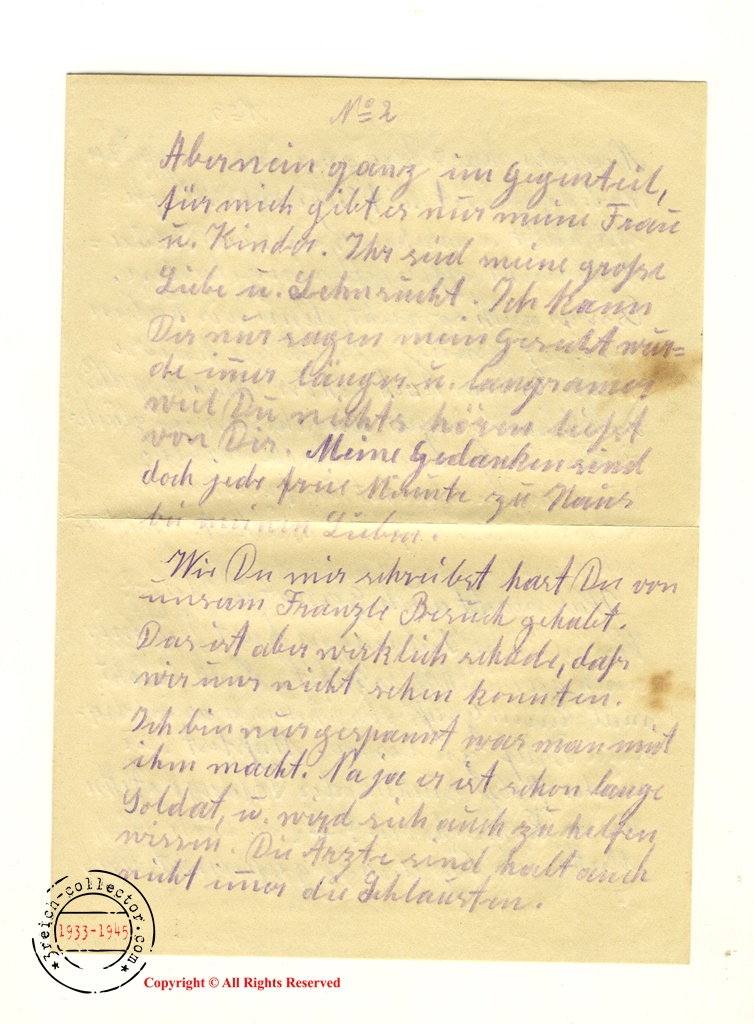 No 2
Aber nein ganz im Gegenteil,
für mich gibt es nur meine Frau
u. Kinder. Ihr seid meine große
Liebe u. Sehnsucht. Ich kann
Dir nur sagen mein Gesicht wur=
de imer länger u. langsamer
weil Du nichts hören ließt
von Dir. Meine Gedanken sind
doch jede freie Minute zu Haus
bei meinen Lieben.
Wie Du mir schreibst hast Du von
unsam Franzle Besuch gehabt.
Das ist aber wirklich schade, daß
wir uns nicht sehen konnten.
Ich bin nur gespannt was man mit
ihm macht. Na ja er ist schon lange
Soldat, u. wird sich auch zu helfen
wissen. Die Ärzte sind halt auch
nicht imer die Schlausten.
3reich-collector.com
1933-1945
Copyright © All Rights Reserved